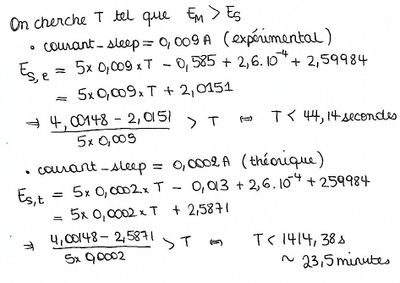 On cherche T tel que E_M > E_S
• courant_sleep = 0,009 A (expérimental)
E_S,e = 5 x 0,009 x T - 0,585 + 2,6.10^-4 + 2,59984
= 5 x 0,009 x T + 2,0151
⇒ 4,00148 - 2,0151 / 5 x 0,009 > T ⇔ T < 44,14 secondes
• courant_sleep = 0,0002 A (théorique)
E_S,t = 5 x 0,0002 x T - 0,013 + 2,6.10^-4 + 259984
= 5 x 0,0002 x T + 2,5871
⇒ 4,00148 - 2,5871 / 5 x 0,0002 > T ⇔ T < 1414,38 s
~ 23,5 minutes